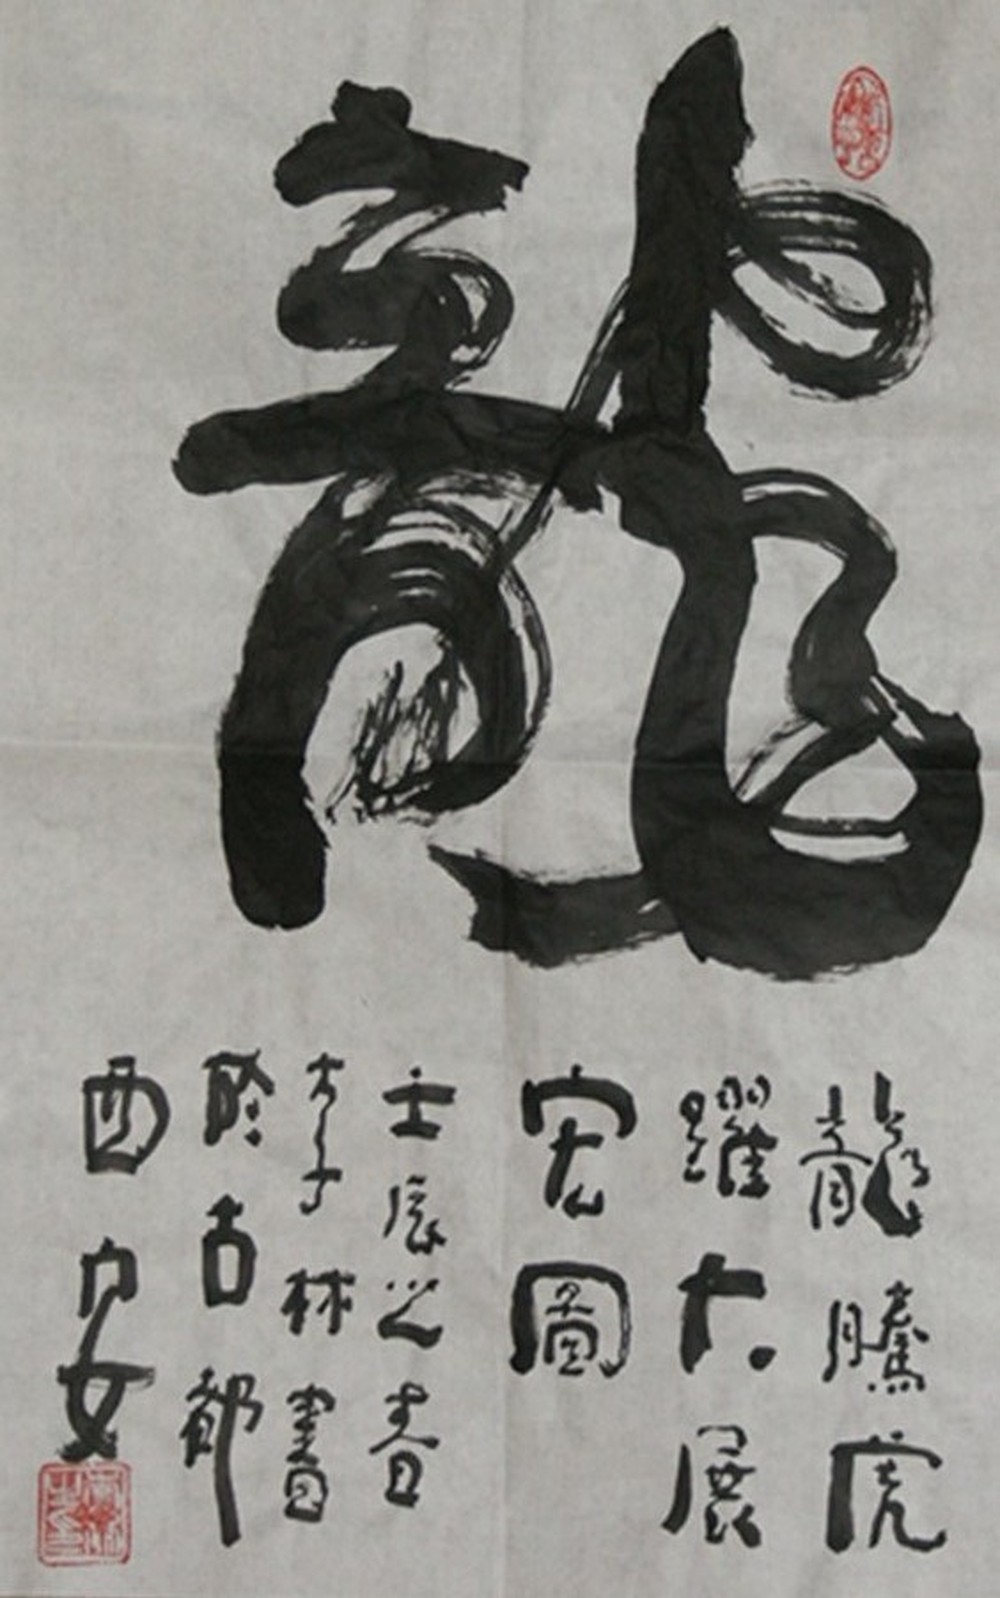 龍
龍騰虎
躍大展
宏圖
壬辰之春
李林書
於古都
西安